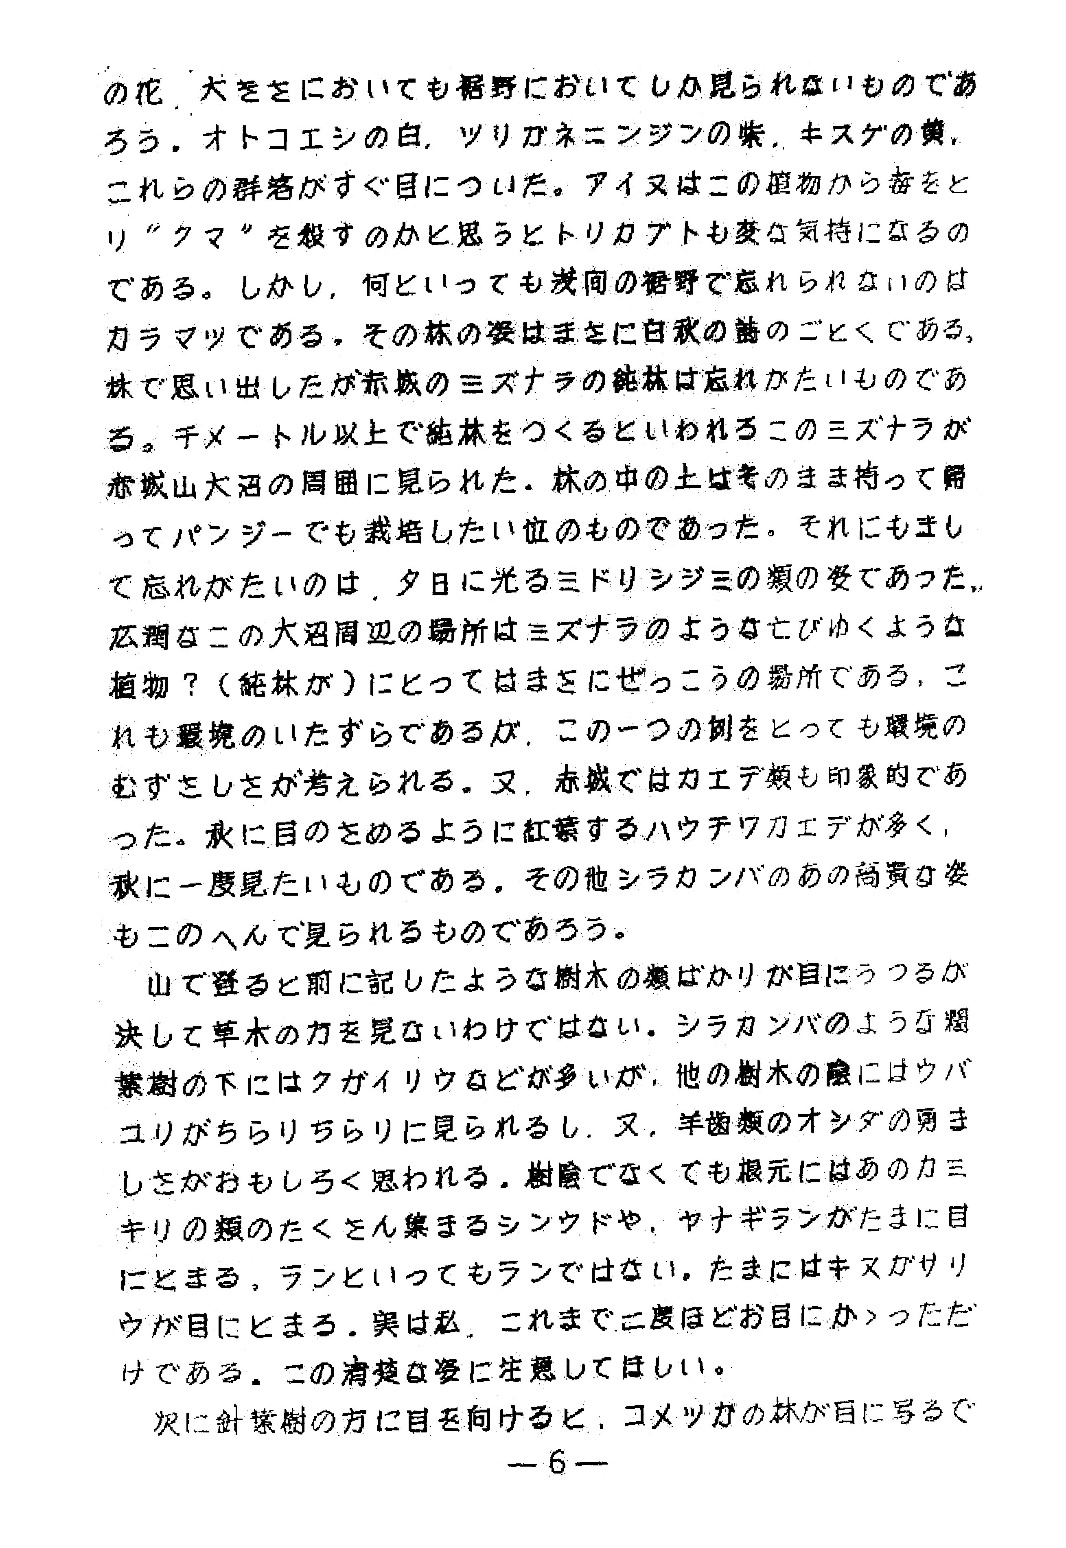 の花，大きさにおいても裾野においてしか見られないものであ
ろう．オトコエシの白，ツリガネニンジンの紫，キスゲの黄，
これらの群落がすぐ目についた。アイヌはこの植物から毒をと
り〝クマ〟を殺すのかと思うとトリカブトも変な気持になるの
である。しかし，何といっても浅間の裾野で忘れられないのは
カラマツである．その林の姿はまさに白秋の詩のごとくである．
林で思い出したが赤城のミズナラの純林は忘れがたいものであ
る。千メートル以上で純林をつくるといわれるこのミズナラが
赤城山大沼の周囲に見られた．林の中の土はそのまま持って帰
ってパンジーでも栽培したい位のものであった。それにもまし
て忘れがたいのは，夕日に光るミドリシジミの類の姿であった．
広潤なこの大沼周辺の場所はミズナラのような亡びゆくような
植物？（純林が）にとってはまさにぜっこうの場所である．こ
れも環境のいたずらであるが，この一つの例をとっても環境の
むずさしさが考えられる．又，赤城ではカエデ類も印象的であ
った。秋に目のさめるように紅葉するハウチワカエデが多く，
秋に一度見たいものである．その他シラカンバのあの高貴な姿
もこのへんで見られるものであろう。
山で登ると前に記したような樹木の類ばかりが目にうつるが
決して草木の力を見ないわけではない．シラカンバのような潤
葉樹の下にはクガイリウなどが多いが，他の樹木の陰にはウバ
ユリがちらりちらりに見られるし，又，羊歯類のオシダの勇ま
しさがおもしろく思われる．樹陰でなくても根元にはあのカミ
キリの類のたくさん集まるシシウドや，ヤナギランがたまに目
にとまる．ランといってもランではない．たまにはキヌガサリ
ウが目にとまる．実は私，これまで二度ほどお目にかゝっただ
けである．この清楚な姿に注意してほしい。
次に針葉樹の方に目を向けると，コメツガの林が目に写るで
—6—